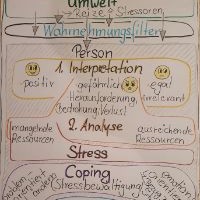 Umwelt
→ Reize + Stressoren
Wahrnehmungsfilter
Person
1. Interpretation
-positiv
gefährlich
-egal
Herausforderung,
irrelevant
Bedrohung, Verlust
mangelnde
Ressourcen
2. Analyse
ausreichende
Ressourcen
Stress
Coping
Stressbewältigung
problem
orientiert
emotion
orientiert